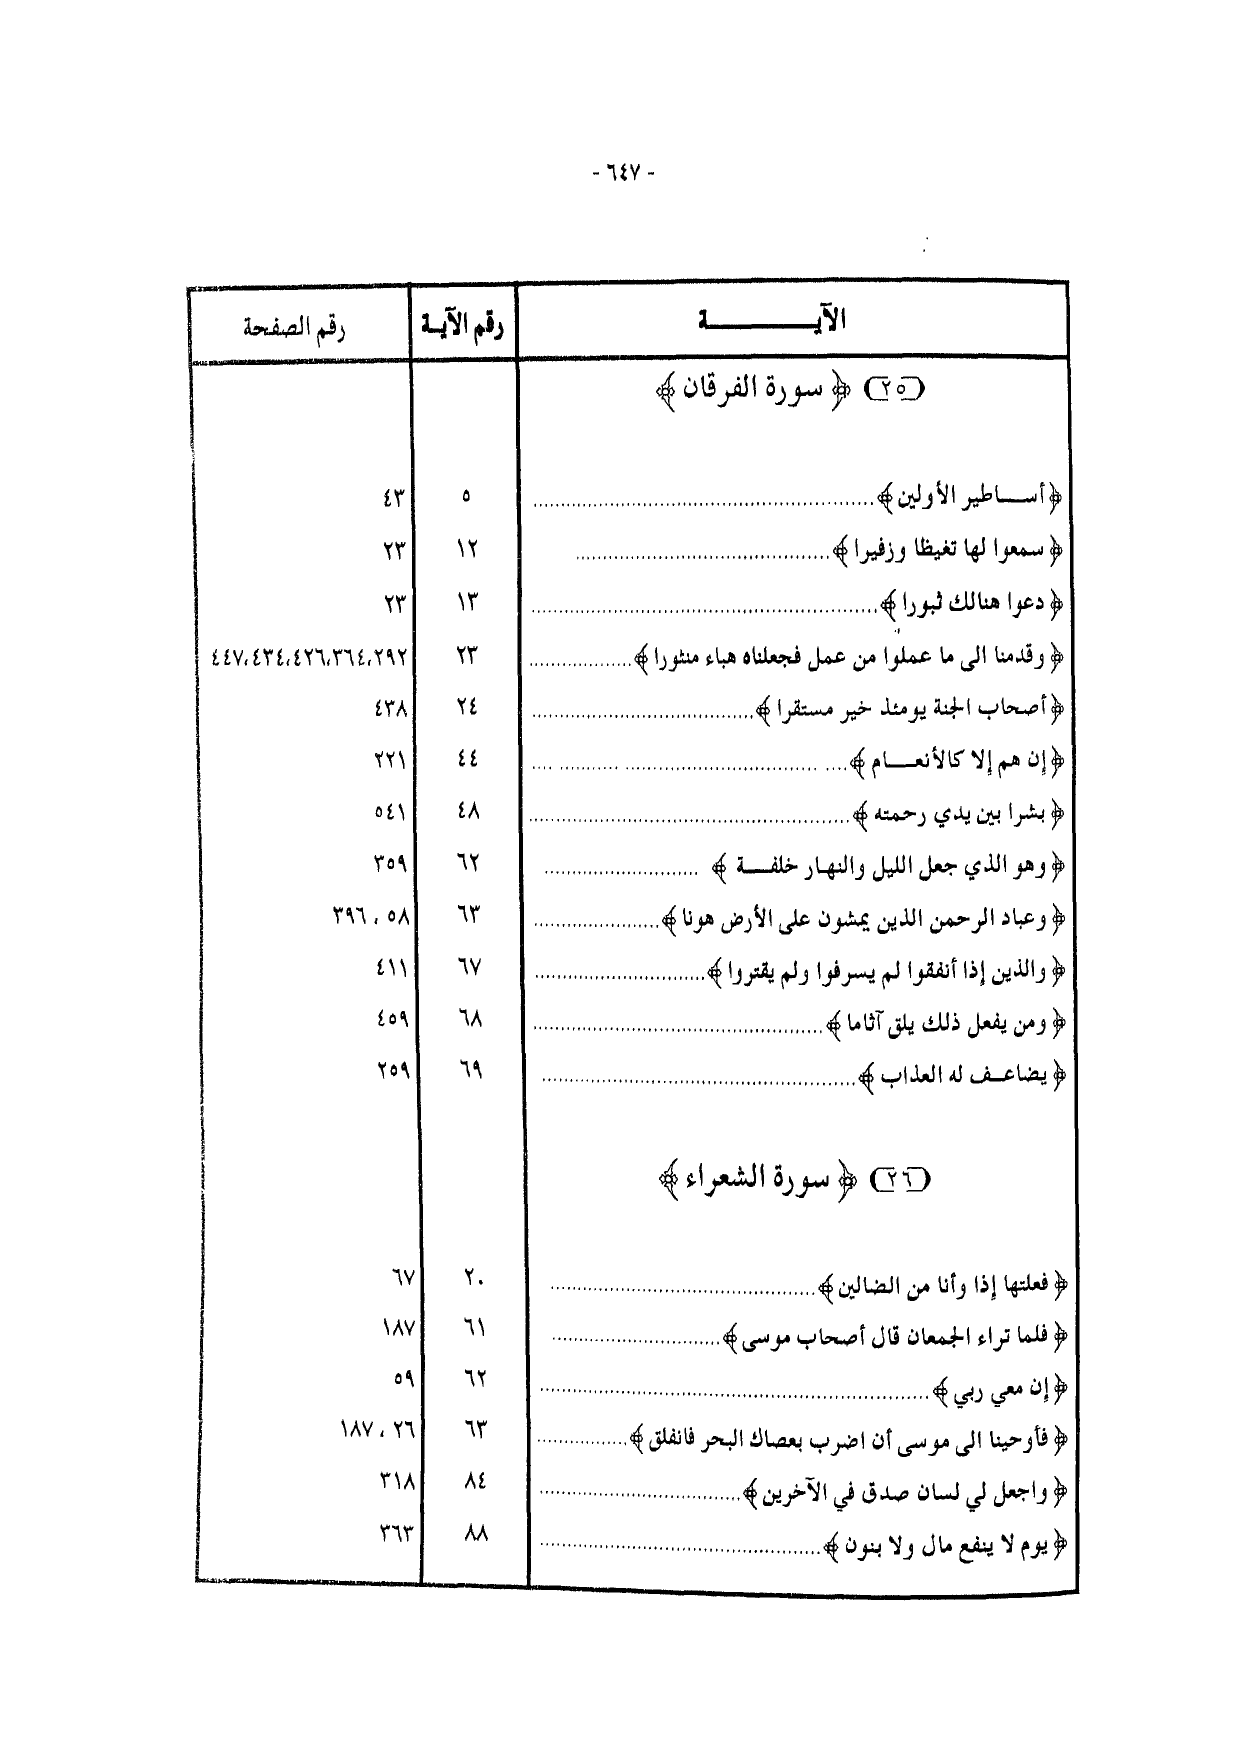 - ٦٤٧ -
الآيـــــــــــة رقم الآيـة رقم الصفحة
(٢٥) ﴿ سورة الفرقان ﴾
﴿ أســـاطير الأولين ﴾ ................ ٥ ٤٣
﴿ سمعوا لها تغيظا وزفيرا ﴾ ................ ١٢ ٢٣
﴿ دعوا هنالك ثبورا ﴾ ................ ١٣ ٢٣
﴿ وقدمنا الى ما عملوا من عمل فجعلناه هباء منثورا ﴾ ................ ٢٣ ٢٩٢،٣٦٤،٤٢٦،٤٣٤،٤٤٧
﴿ أصحاب الجنة يومئذ خير مستقرا ﴾ ................ ٢٤ ٤٣٨
﴿ إن هم إلا كالأنعـــام ﴾ ................ ٤٤ ٢٢١
﴿ بشرا بين يدي رحمته ﴾ ................ ٤٨ ٥٤١
﴿ وهو الذي جعل الليل والنهار خلفـــة ﴾ ................ ٦٢ ٣٥٩
﴿ وعباد الرحمن الذين يمشون على الأرض هونا ﴾ ................ ٦٣ ٥٨ ، ٣٩٦
﴿ والذين إذا أنفقوا لم يسرفوا ولم يقتروا ﴾ ................ ٦٧ ٤١١
﴿ ومن يفعل ذلك يلق آثاما ﴾ ................ ٦٨ ٤٥٩
﴿ يضاعـف له العذاب ﴾ ................ ٦٩ ٢٥٩
(٢٦) ﴿ سورة الشعراء ﴾
﴿ فعلتها إذا وأنا من الضالين ﴾ ................ ٢٠ ٦٧
﴿ فلما تراء الجمعان قال أصحاب موسى ﴾ ................ ٦١ ١٨٧
﴿ إن معي ربي ﴾ ................ ٦٢ ٥٩
﴿ فأوحينا الى موسى أن اضرب بعصاك البحر فانفلق ﴾ ................ ٦٣ ٢٦ ، ١٨٧
﴿ واجعل لي لسان صدق في الآخرين ﴾ ................ ٨٤ ٣١٨
﴿ يوم لا ينفع مال ولا بنون ﴾ ................ ٨٨ ٣٦٣